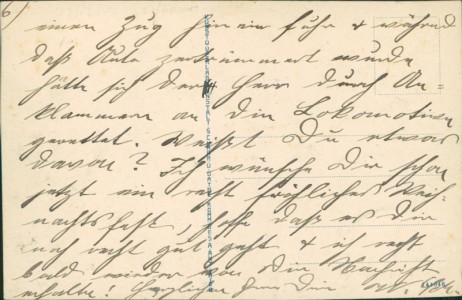 6)
einen Zug hinein fuhr & während
daß Auto zertrümmert wurde
hätte sich der Herr durch An=
klammern an die Lokomotive
gerettet. Weißt Du etwas
davon? Ich wünsche Dir schon
jetzt ein recht fröhliches Weih-
nachtsfest, hoffe daß es Dir
noch recht gut geht & ich recht
bald wieder von Dir Nachricht
erhalte! Herzlichen